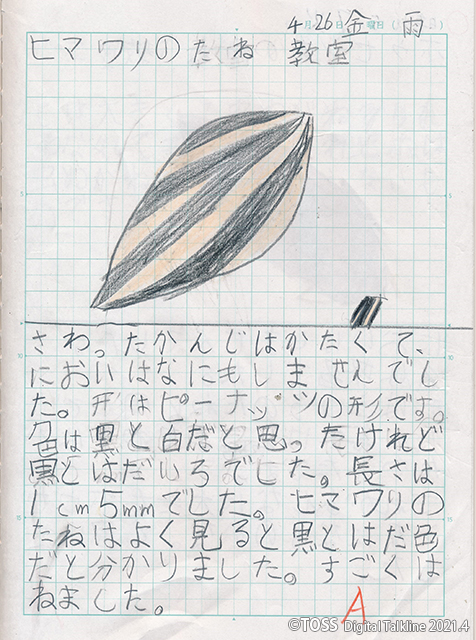 4月26日金曜日 雨
ヒマワリのたね 教室
さわ。たかんじはかたくて、
においはなにもしませんでし
た。形はピーナッツの形です。
色は黒と白だと思ったけれど
黒とはだいろでした。長さは
1cm5mmでした。ヒマワリの
たねはよく見ると黒とはだ色
だと分かりました。すごくは
ねました。
A
©TOSS Digital Talkline 2021.4